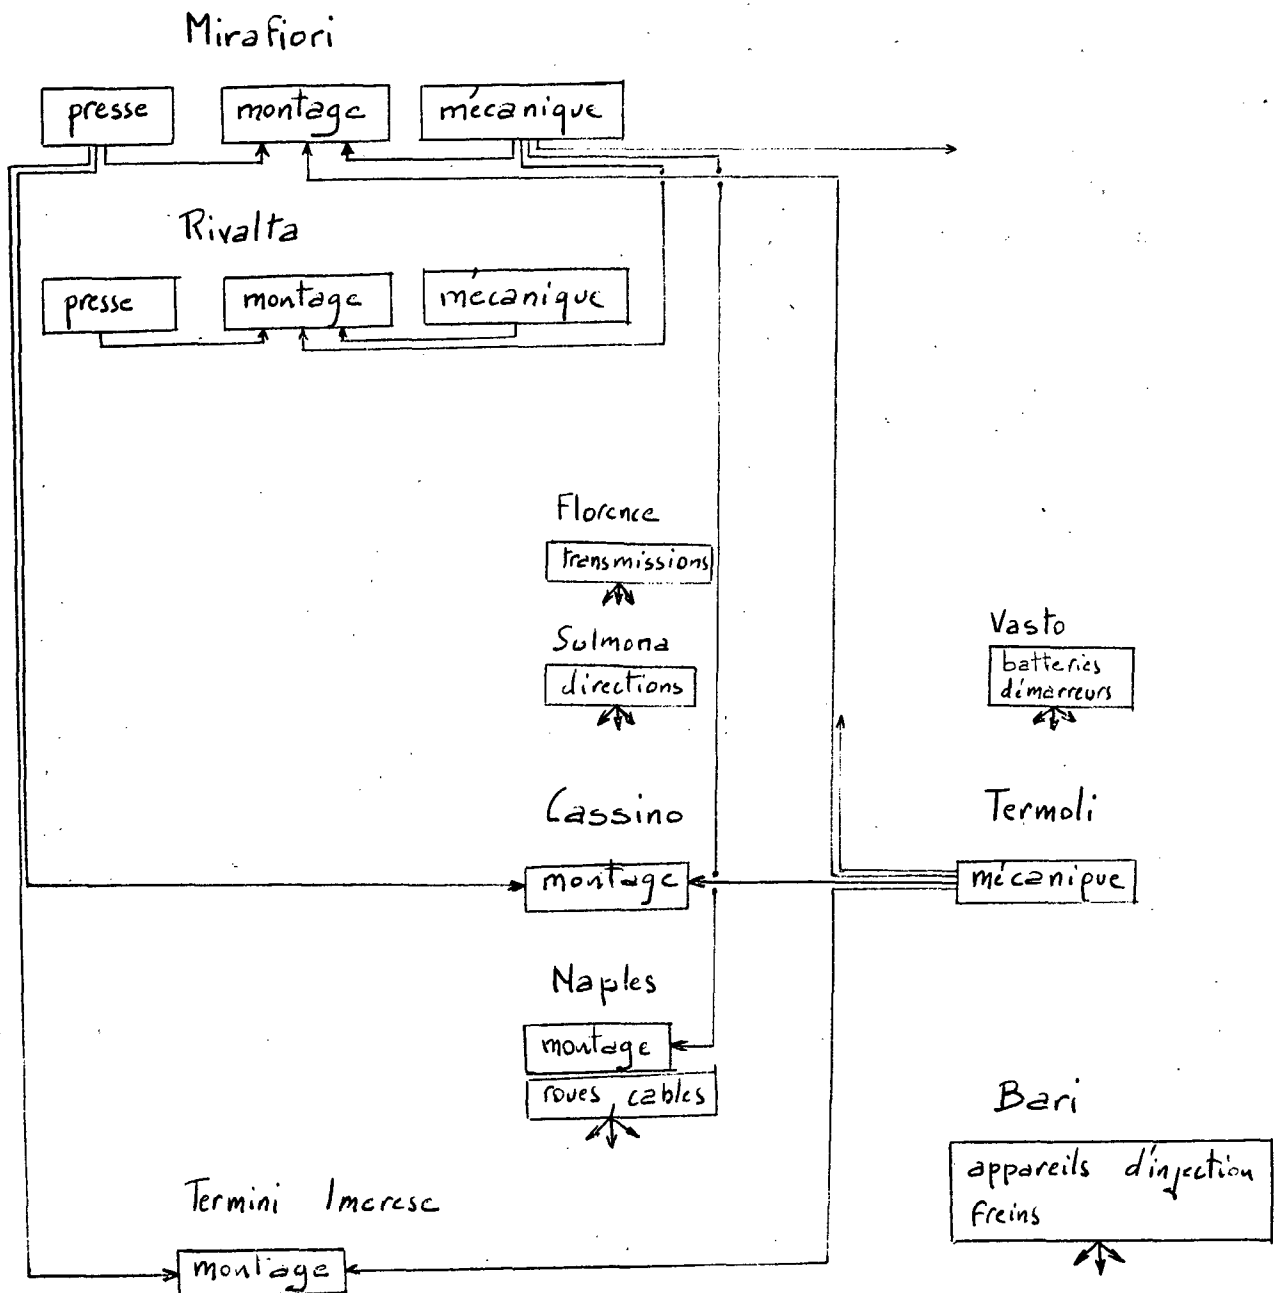 Mirafiori
presse montage mécanique
Rivalta
presse montage mécanique
Florence
transmissions
Sulmona
directions
Vasto
batteries
démarreurs
Cassino
montage
Termoli
mécanique
Naples
montage
roues, cables
Bari
appareils d'injection
freins
Termini Imerese
montage